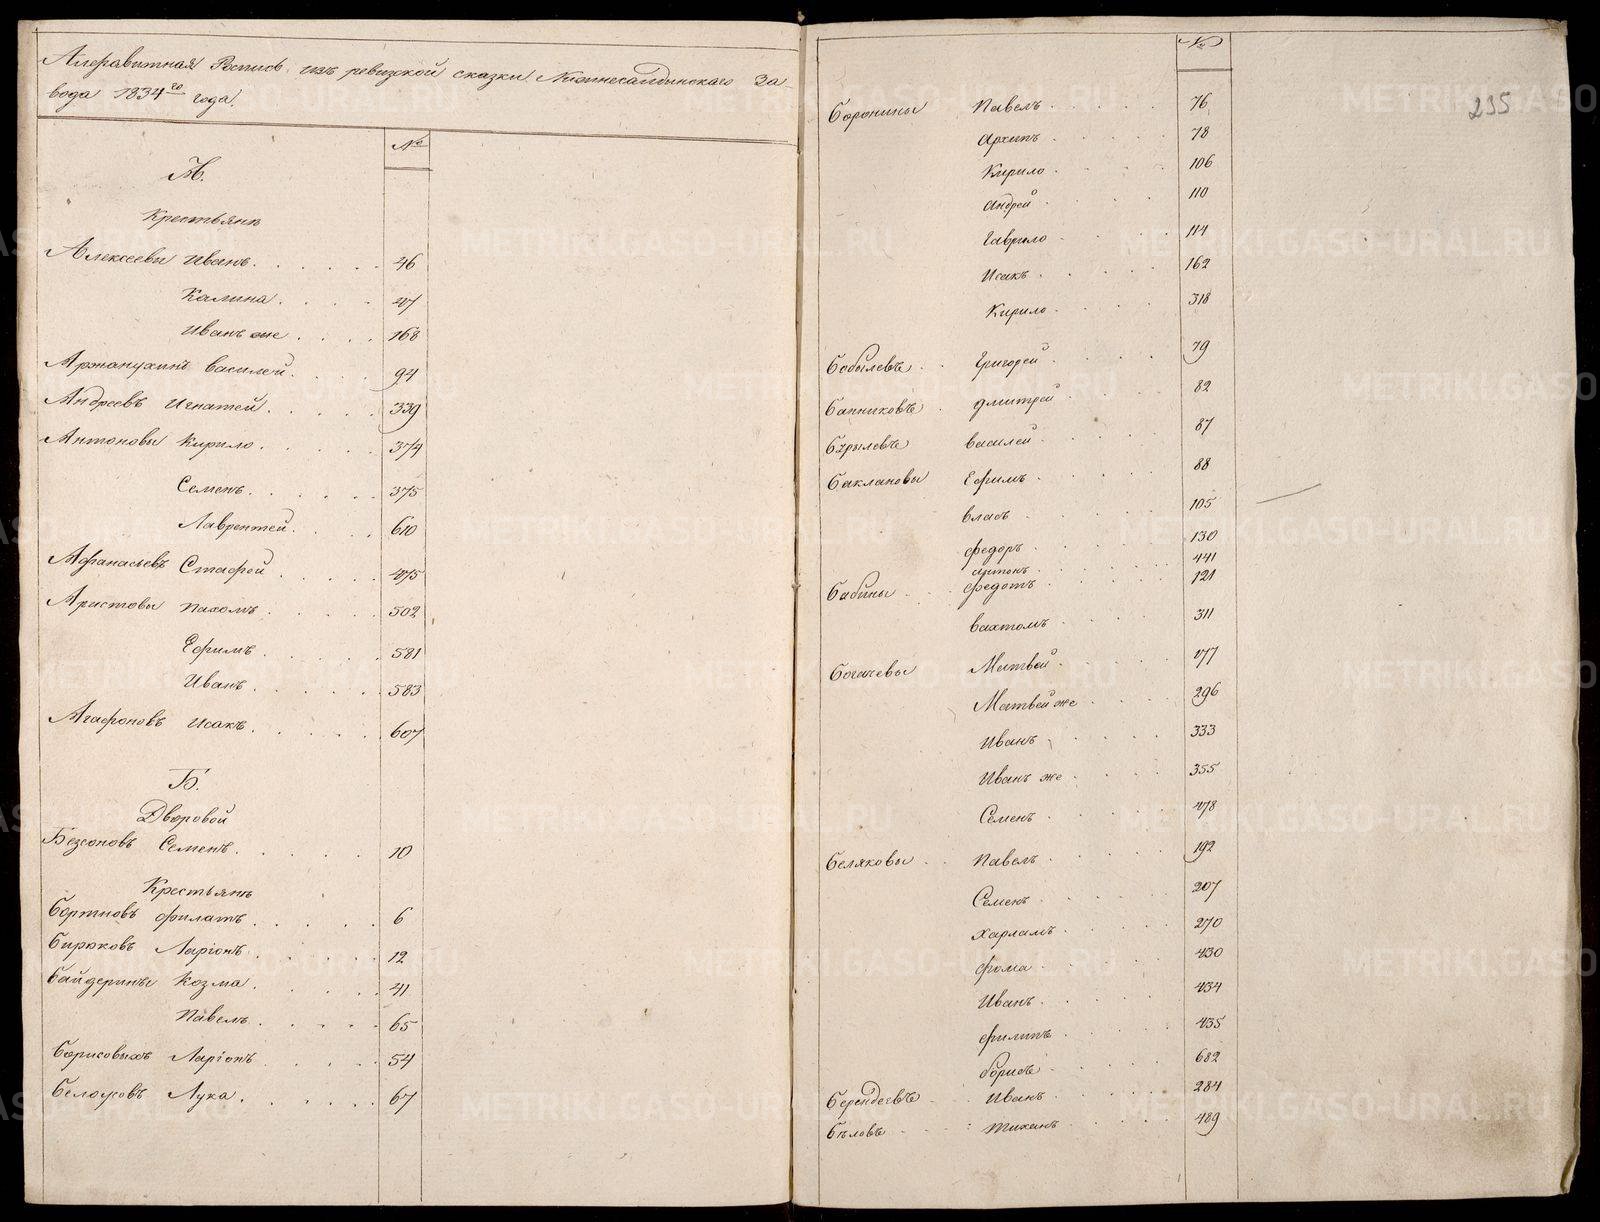 Алфавитная Роспись изъ ревизской сказки Нижнесалдинскаго За-
вода 1834го года.
№
А.
Крестьяне
Алексеевы Иванъ 46
Калина 47
Иванъ же 168
Аржанухинъ Василей 94
Андреевъ Игнатей 339
Антоновы Кирило 374
Семенъ 375
Лаврентей 610
Афанасьевъ Стафей 475
Аристовы Пахомъ 502
Ефимъ 581
Иванъ 583
Агафоновъ Исакъ 607
Б.
Дворовой
Безсоновъ Семенъ 10
Крестьяне
Бортновъ Филатъ 6
Бирюковъ Ларіонъ 12
Байдерины Козма 41
Павелъ 65
Борисовыхъ Ларіонъ 54
Белоусовъ Лука 67
№
235
Боронины Павелъ 76
Архипъ 78
Кирило 106
Андрей 110
Гаврило 114
Исакъ 162
Кирило 318
Бобылевъ Григорей 79
Банниковъ Дмитрей 82
Бурылевъ Василей 87
Баклановы Ефимъ 88
Власъ 105
Федоръ 130
Антонъ 441
Бабины Федотъ 121
Вахтомъ 311
Богачевы Матвей 177
Матвей же 296
Иванъ 333
Иванъ же 355
Семенъ 478
Беляковы Павелъ 192
Семенъ 207
Харламъ 270
Фома 430
Иванъ 434
Филипъ 435
Борисъ 682
Берендеевъ Иванъ 284
Бѣловъ Тиханъ 489
METRIKI.GASO-URAL.RU